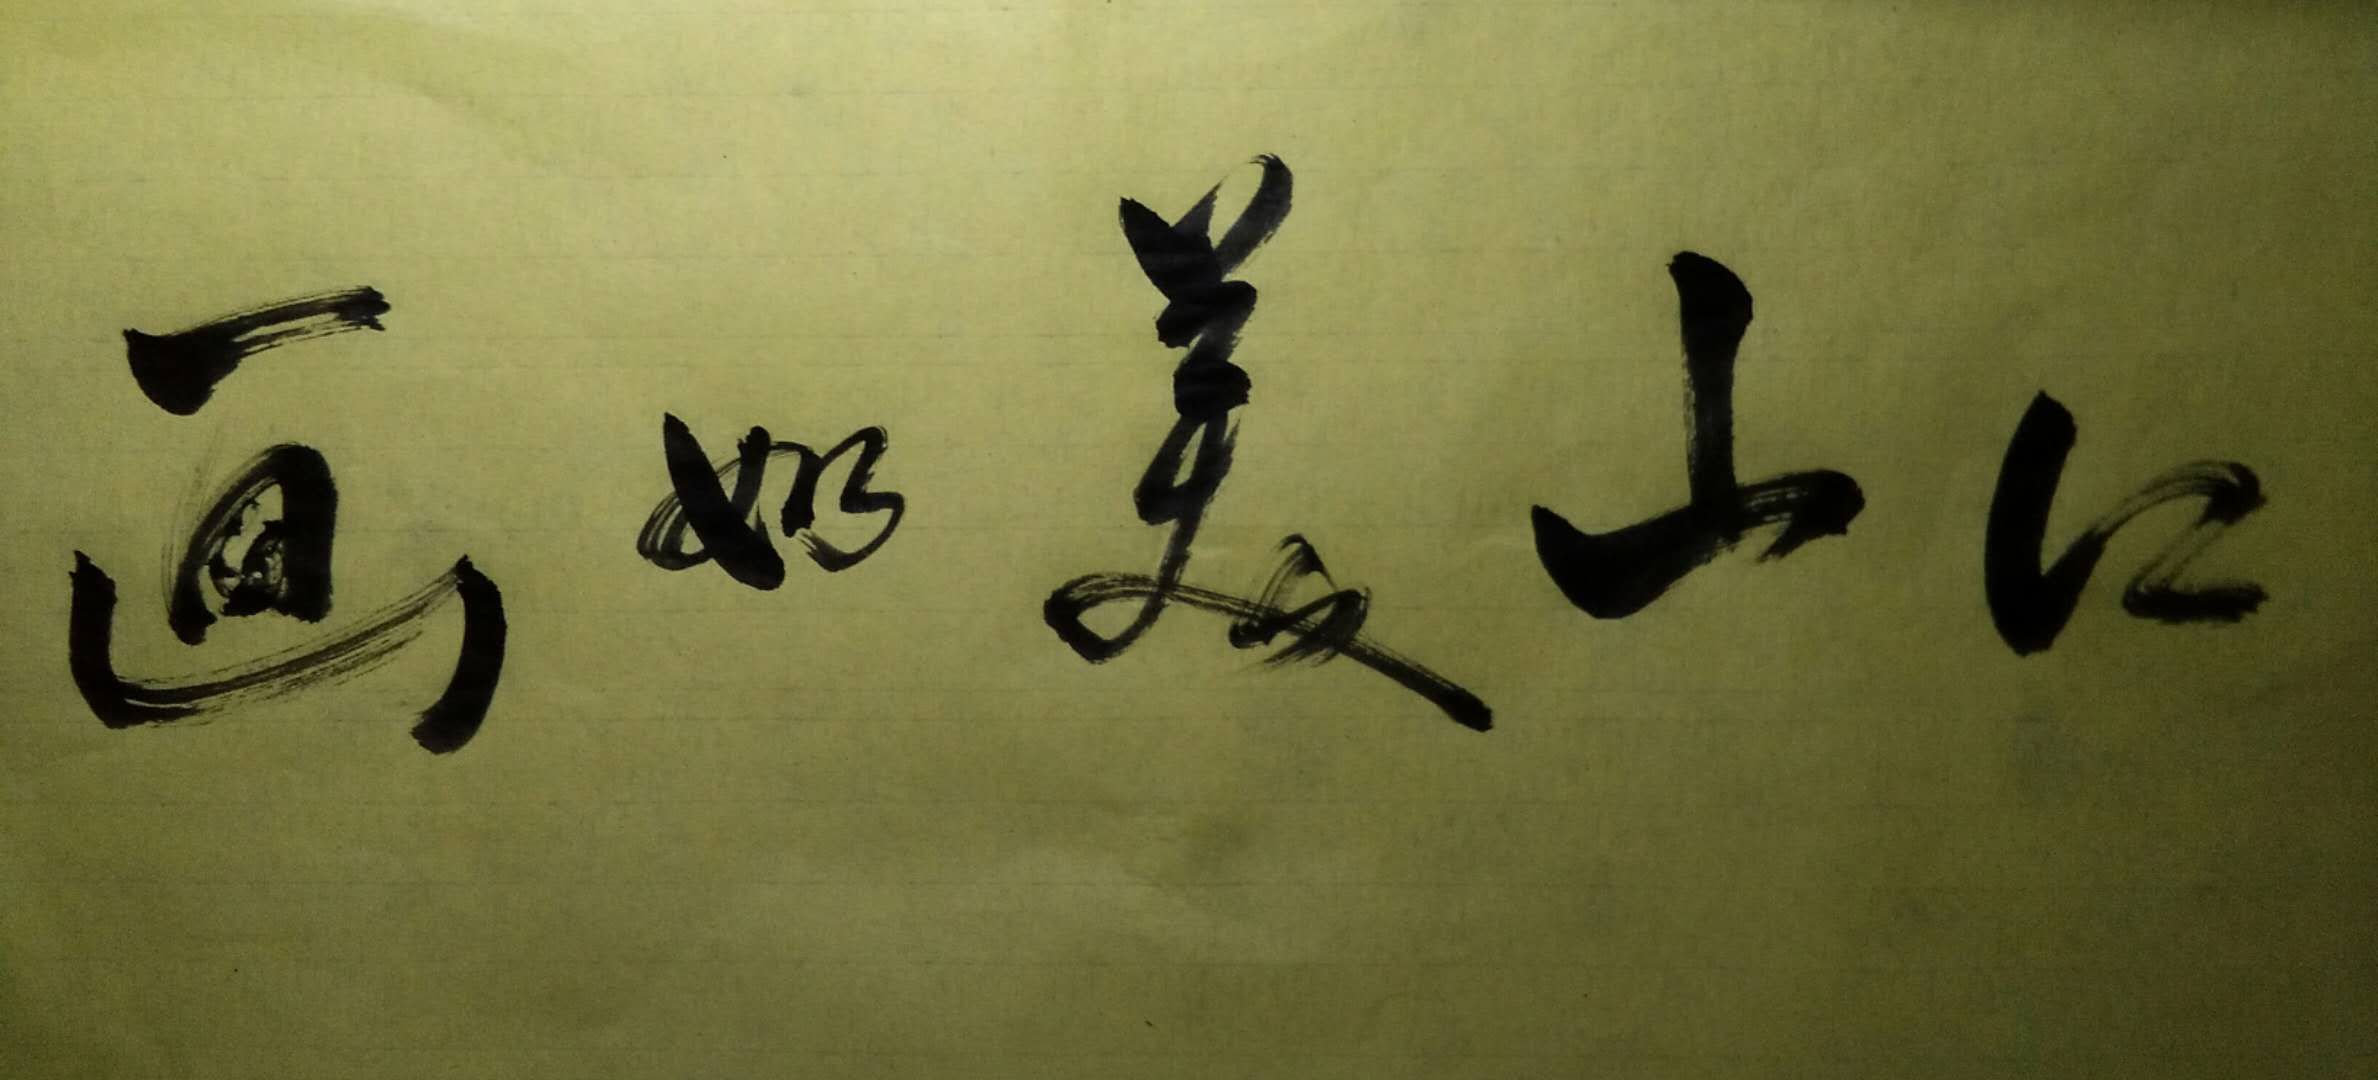 江山美如画